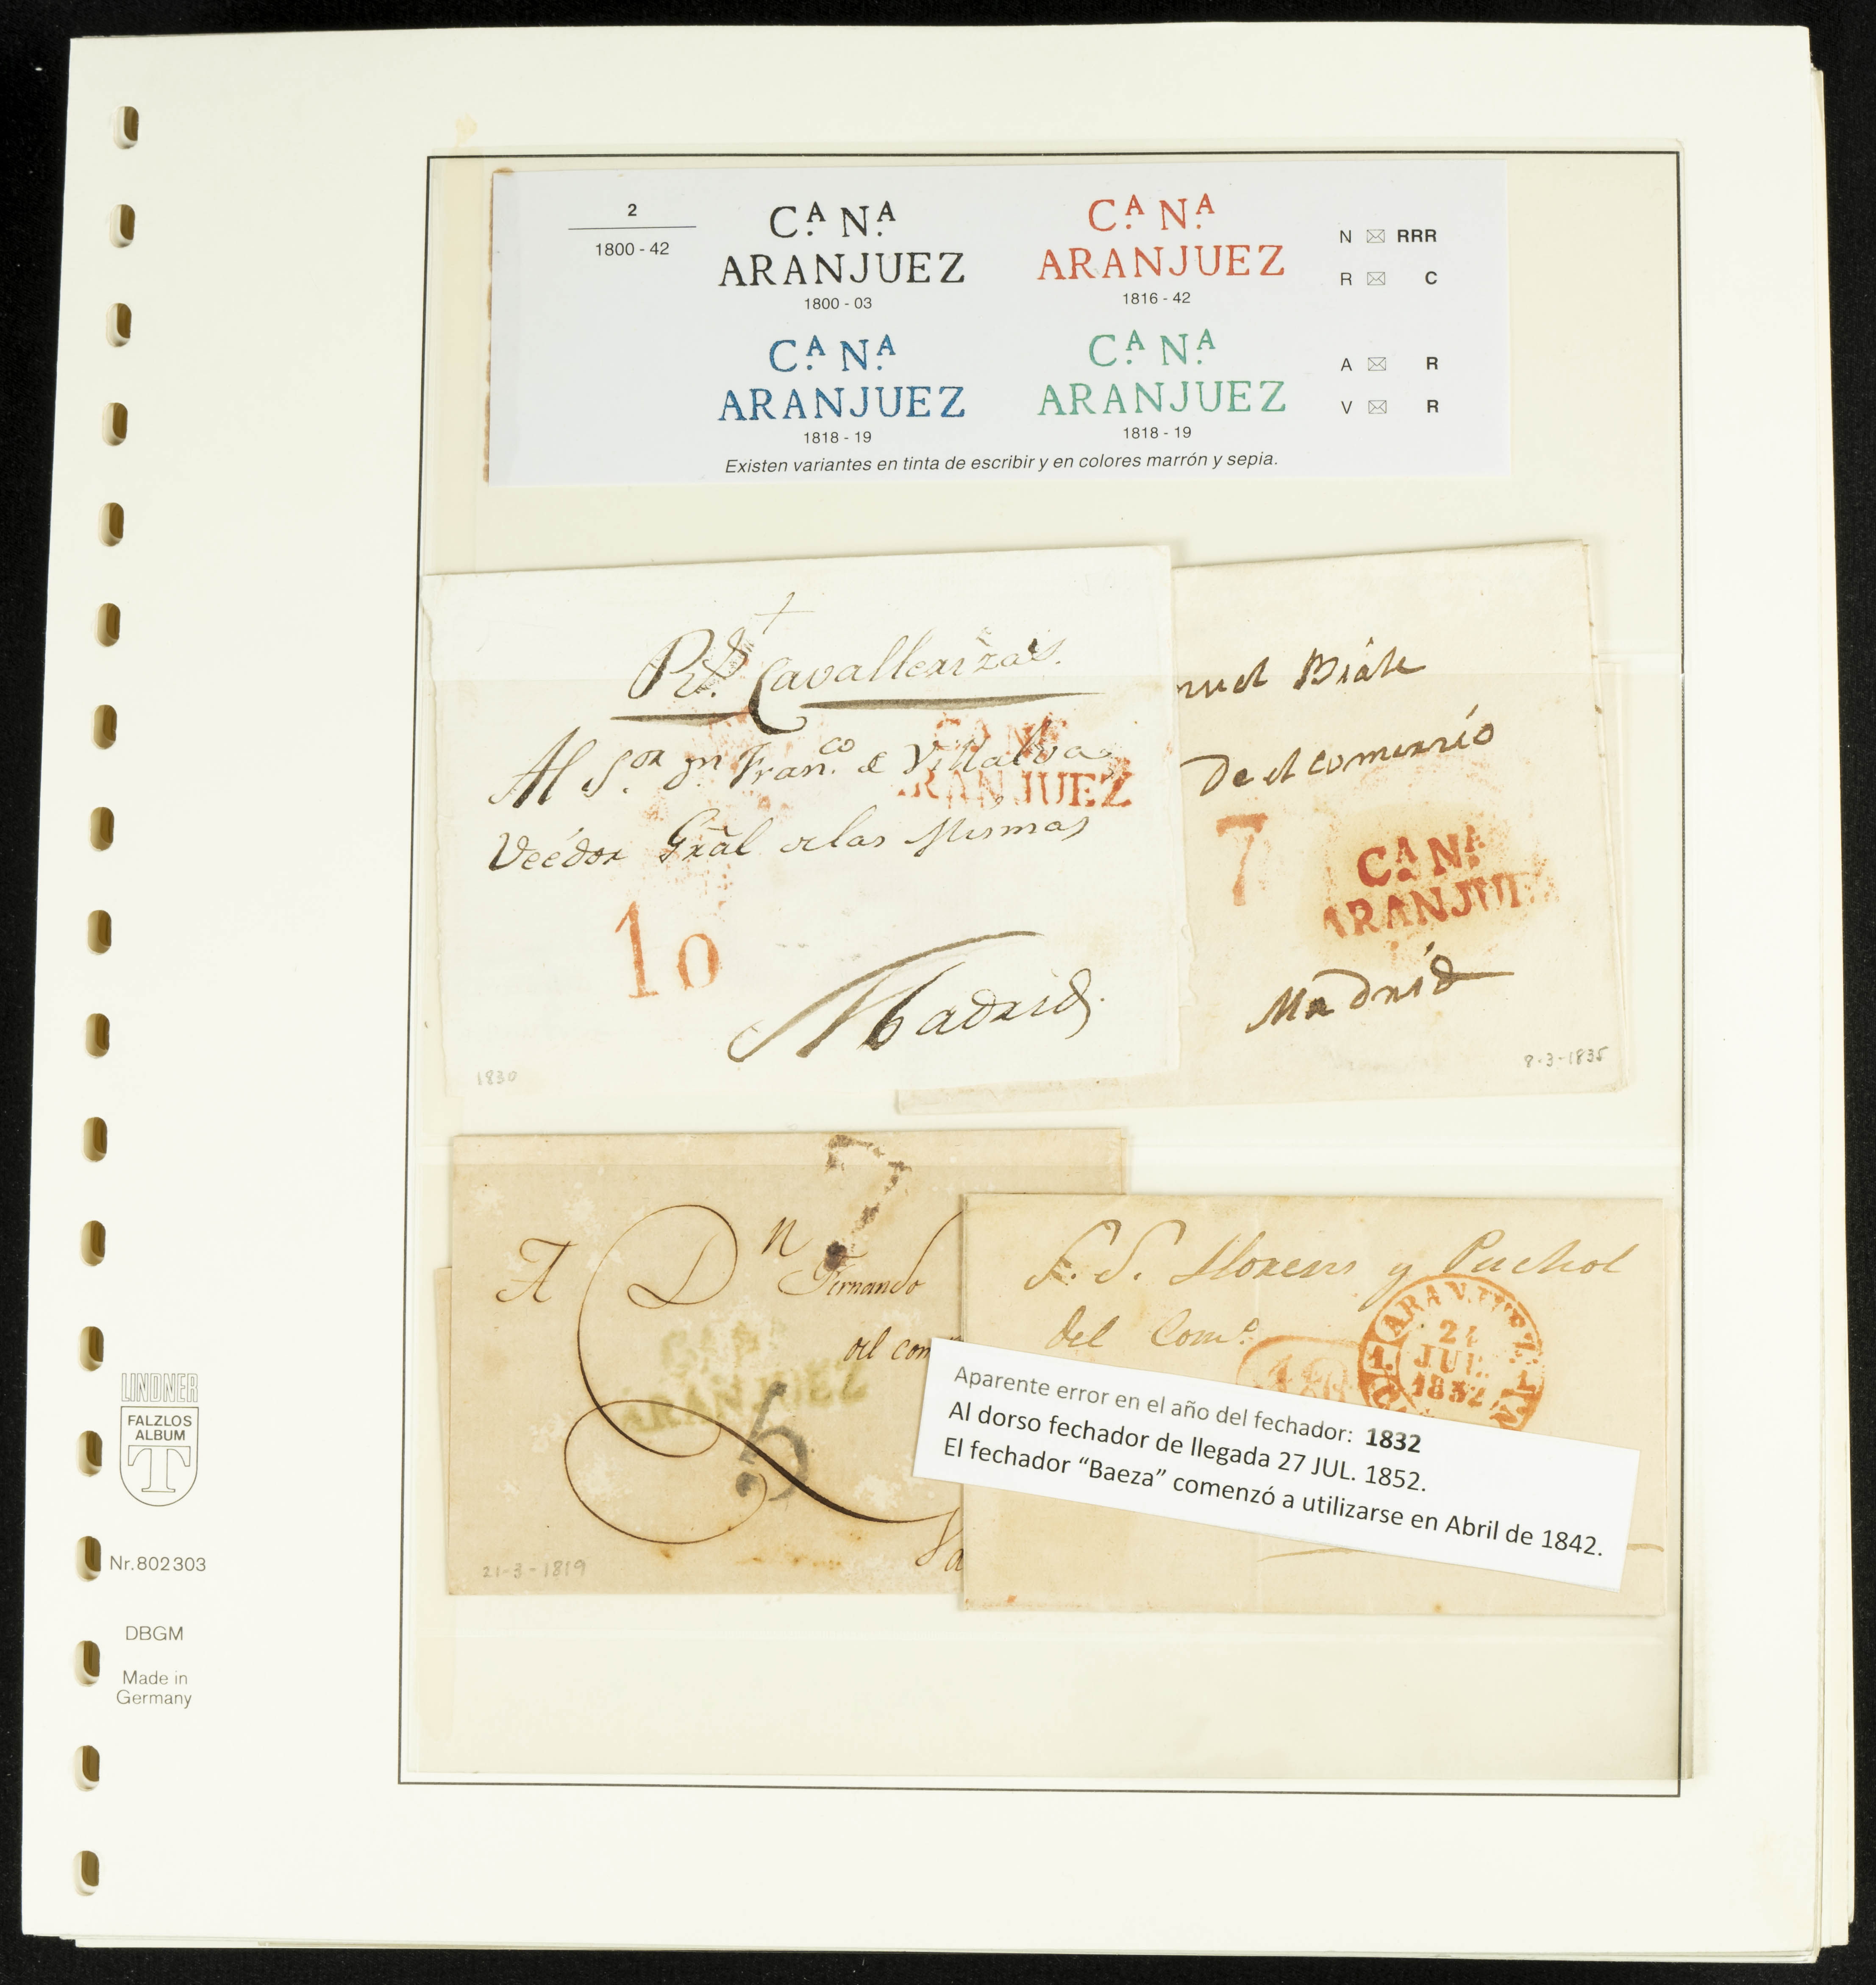 2
1800 - 42
Cᴬ. Nᴬ.
ARANJUEZ
1800 - 03
Cᴬ. Nᴬ.
ARANJUEZ
1816 - 42
N ✉ RRR
R ✉ C
Cᴬ. Nᴬ.
ARANJUEZ
1818 - 19
Cᴬ. Nᴬ.
ARANJUEZ
1818 - 19
A ✉ R
V ✉ R
Existen variantes en tinta de escribir y en colores marrón y sepia.
Rs. Cavallerizas.
Al Sor. Dn. Franco. de Villalva
Veédor Gral de las Mismas
RANJUEZ
10
Madrid.
1830
nuel
De el comercio
7
Cᴬ Nᴬ
ARANJUE
Madrid
8-3-1835
7
A Dn Fernando
del com
ARANJUEZ
5
Va
21-3-1819
S. S. Llorens y Puchol
del Como.
ARANJUEZ
JUL
1832
Aparente error en el año del fechador: 1832
Al dorso fechador de llegada 27 JUL. 1852.
El fechador “Baeza” comenzó a utilizarse en Abril de 1842.
LINDNER
FALZLOS
ALBUM
T
Nr. 802 303
DBGM
Made in
Germany